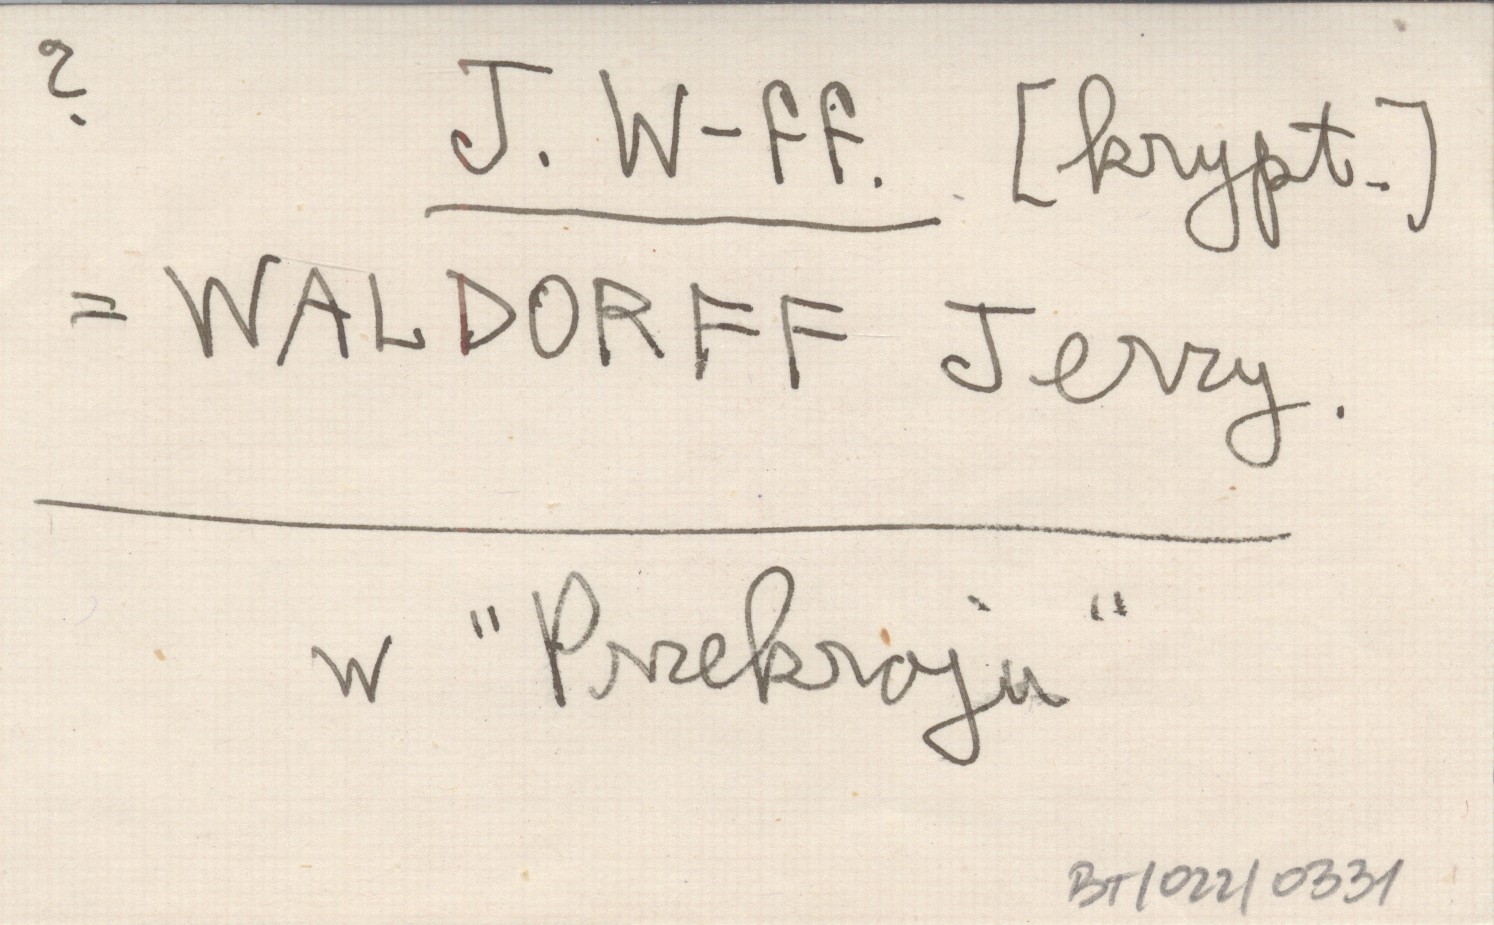 ?
J. W-ff. [krypt.]
= WALDORFF Jerzy.
w "Przekroju"
BT/022/0331